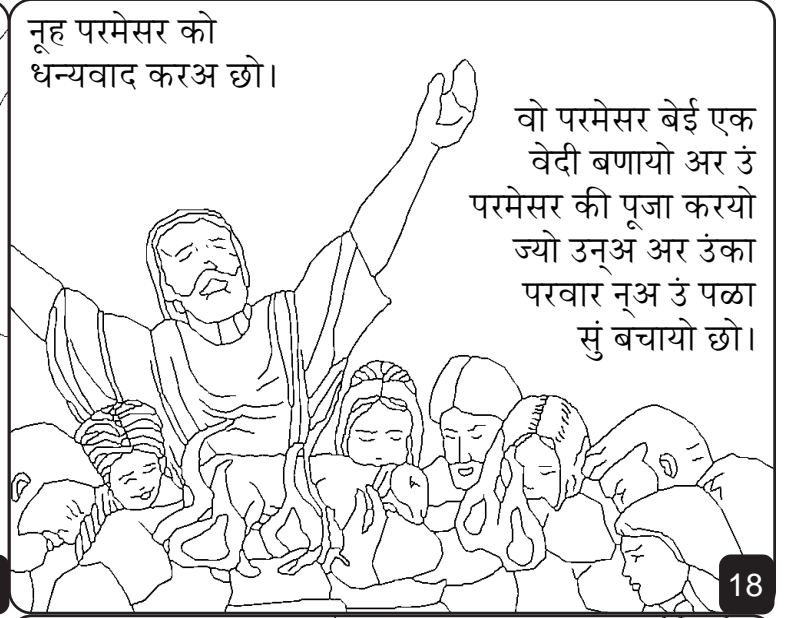 नूह परमेसर को
धन्यवाद करअ छो।
वो परमेसर बेई एक
वेदी बणायो अर उं
परमेसर की पूजा करयो
ज्यो उन्अ अर उंका
परवार न्अ उं पळा
सुं बचायो छो।
18